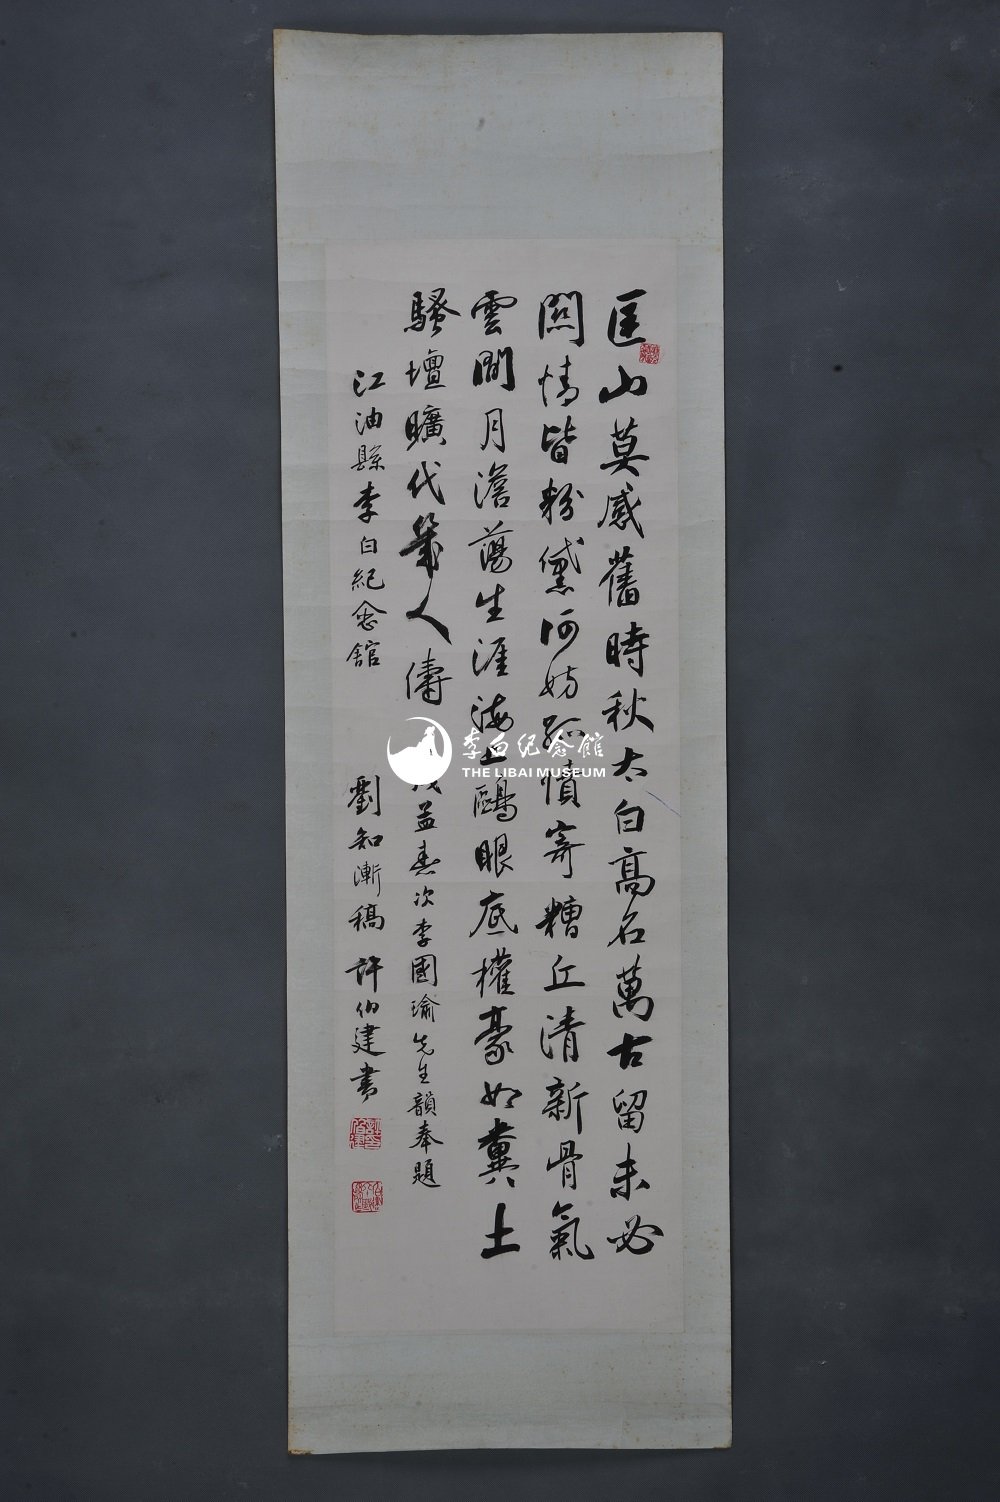 匡山莫感舊時秋太白高名萬古留未必
關情皆粉黛何妨孤憤寄糟丘清新骨氣
雲間月澹蕩生涯海上鷗眼底權豪如糞土
騷壇曠代幾人儔
益壽次李國瑜先生韻奉題
江油縣李白紀念館
劉知漸稿 許伯建書
李白纪念馆
THE LIBAI MUSEUM